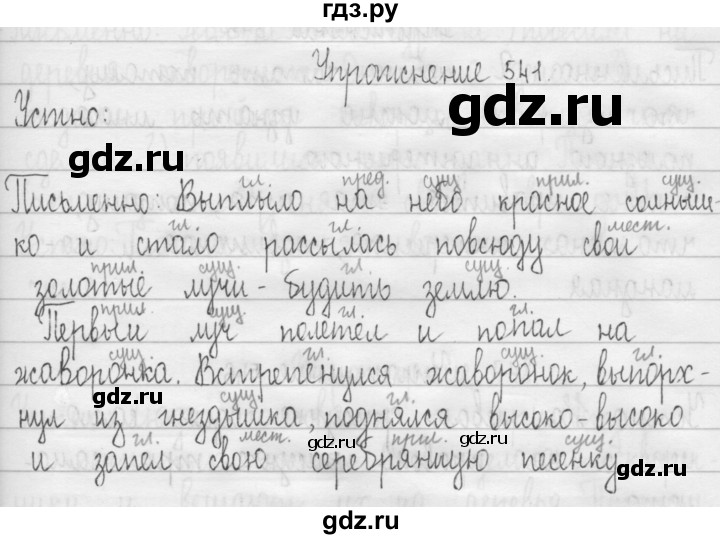 гдз.ру
Упражнение 541
gdz.ru
Устно:
gdz.ru
гл. пред. сущ. прил. сущ.
Письменно: Выплыло на небо красное солныш-
гл. гл. мест.
ко и стало рассылать повсюду свои
прил. сущ. гл. сущ.
золотые лучи - будить землю.
прил. сущ. гл. гл.
Первый луч полетел и попал на
сущ. гл. сущ. гл.
жаворонка. Встрепенулся жаворонок, выпорх-
сущ. гл.
нул из гнездышка, поднялся высоко-высоко
gdz.ru gdz.ru
гл. мест. прил. сущ.
и запел свою серебрянную песенку
gdz.ru gdz.ru
gdz.ru